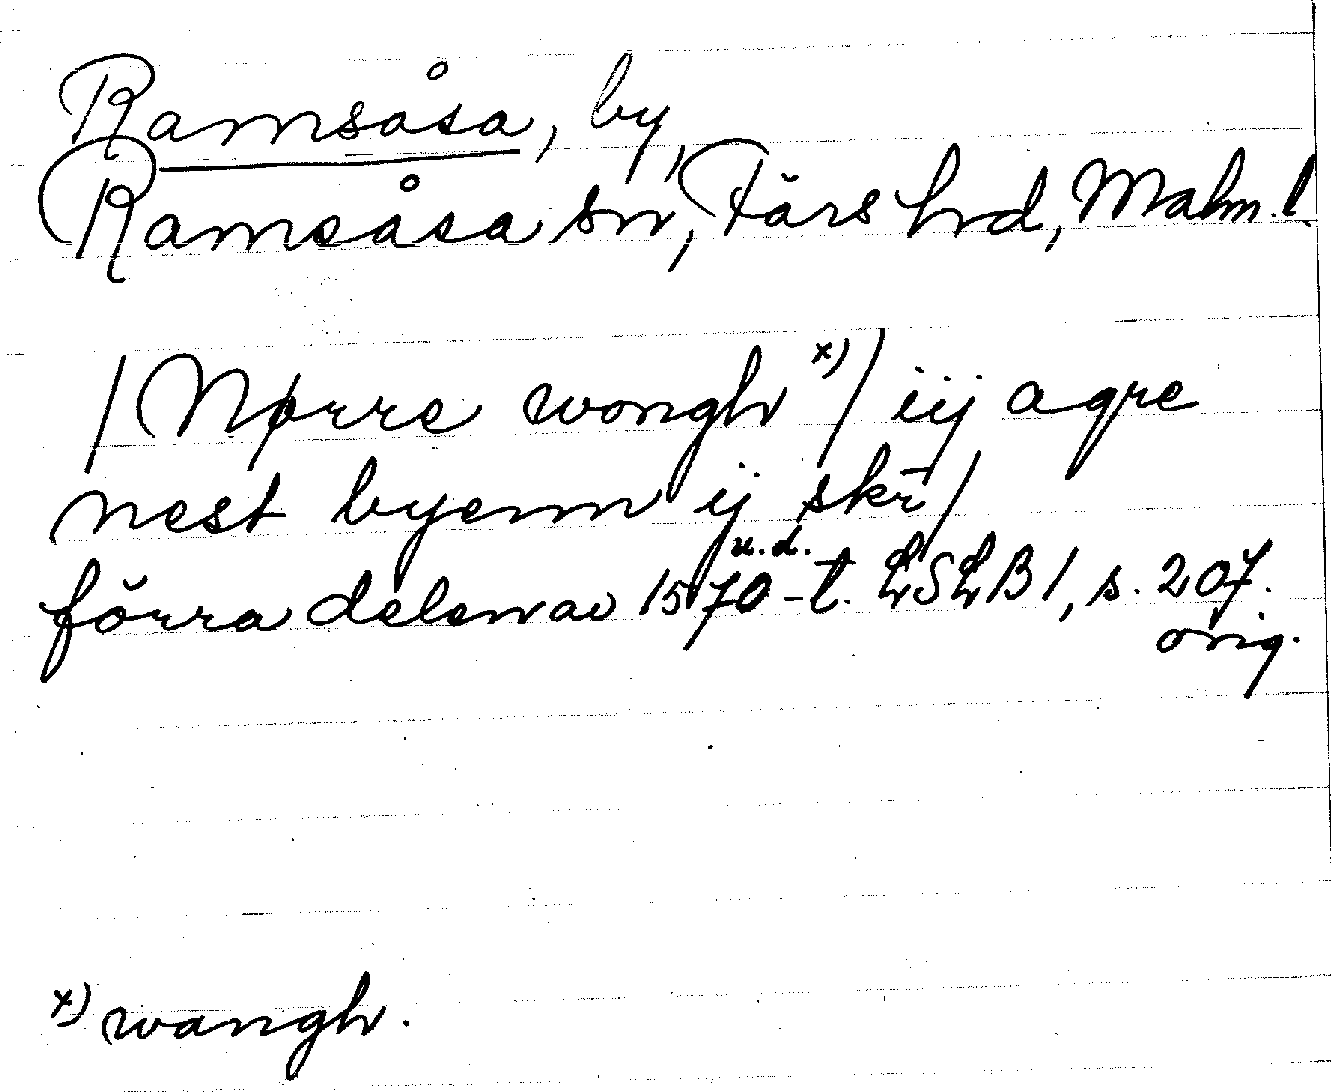 Ramsåsa, by,
Ramsåsa sn, Färs hd, Malm. l.
/Nørre wongh x)/ iij agre
nest byenn ij skr̄/
förra delen av 1570-t. u.d. LSLB 1, s. 207.
orig.
x) wangh.